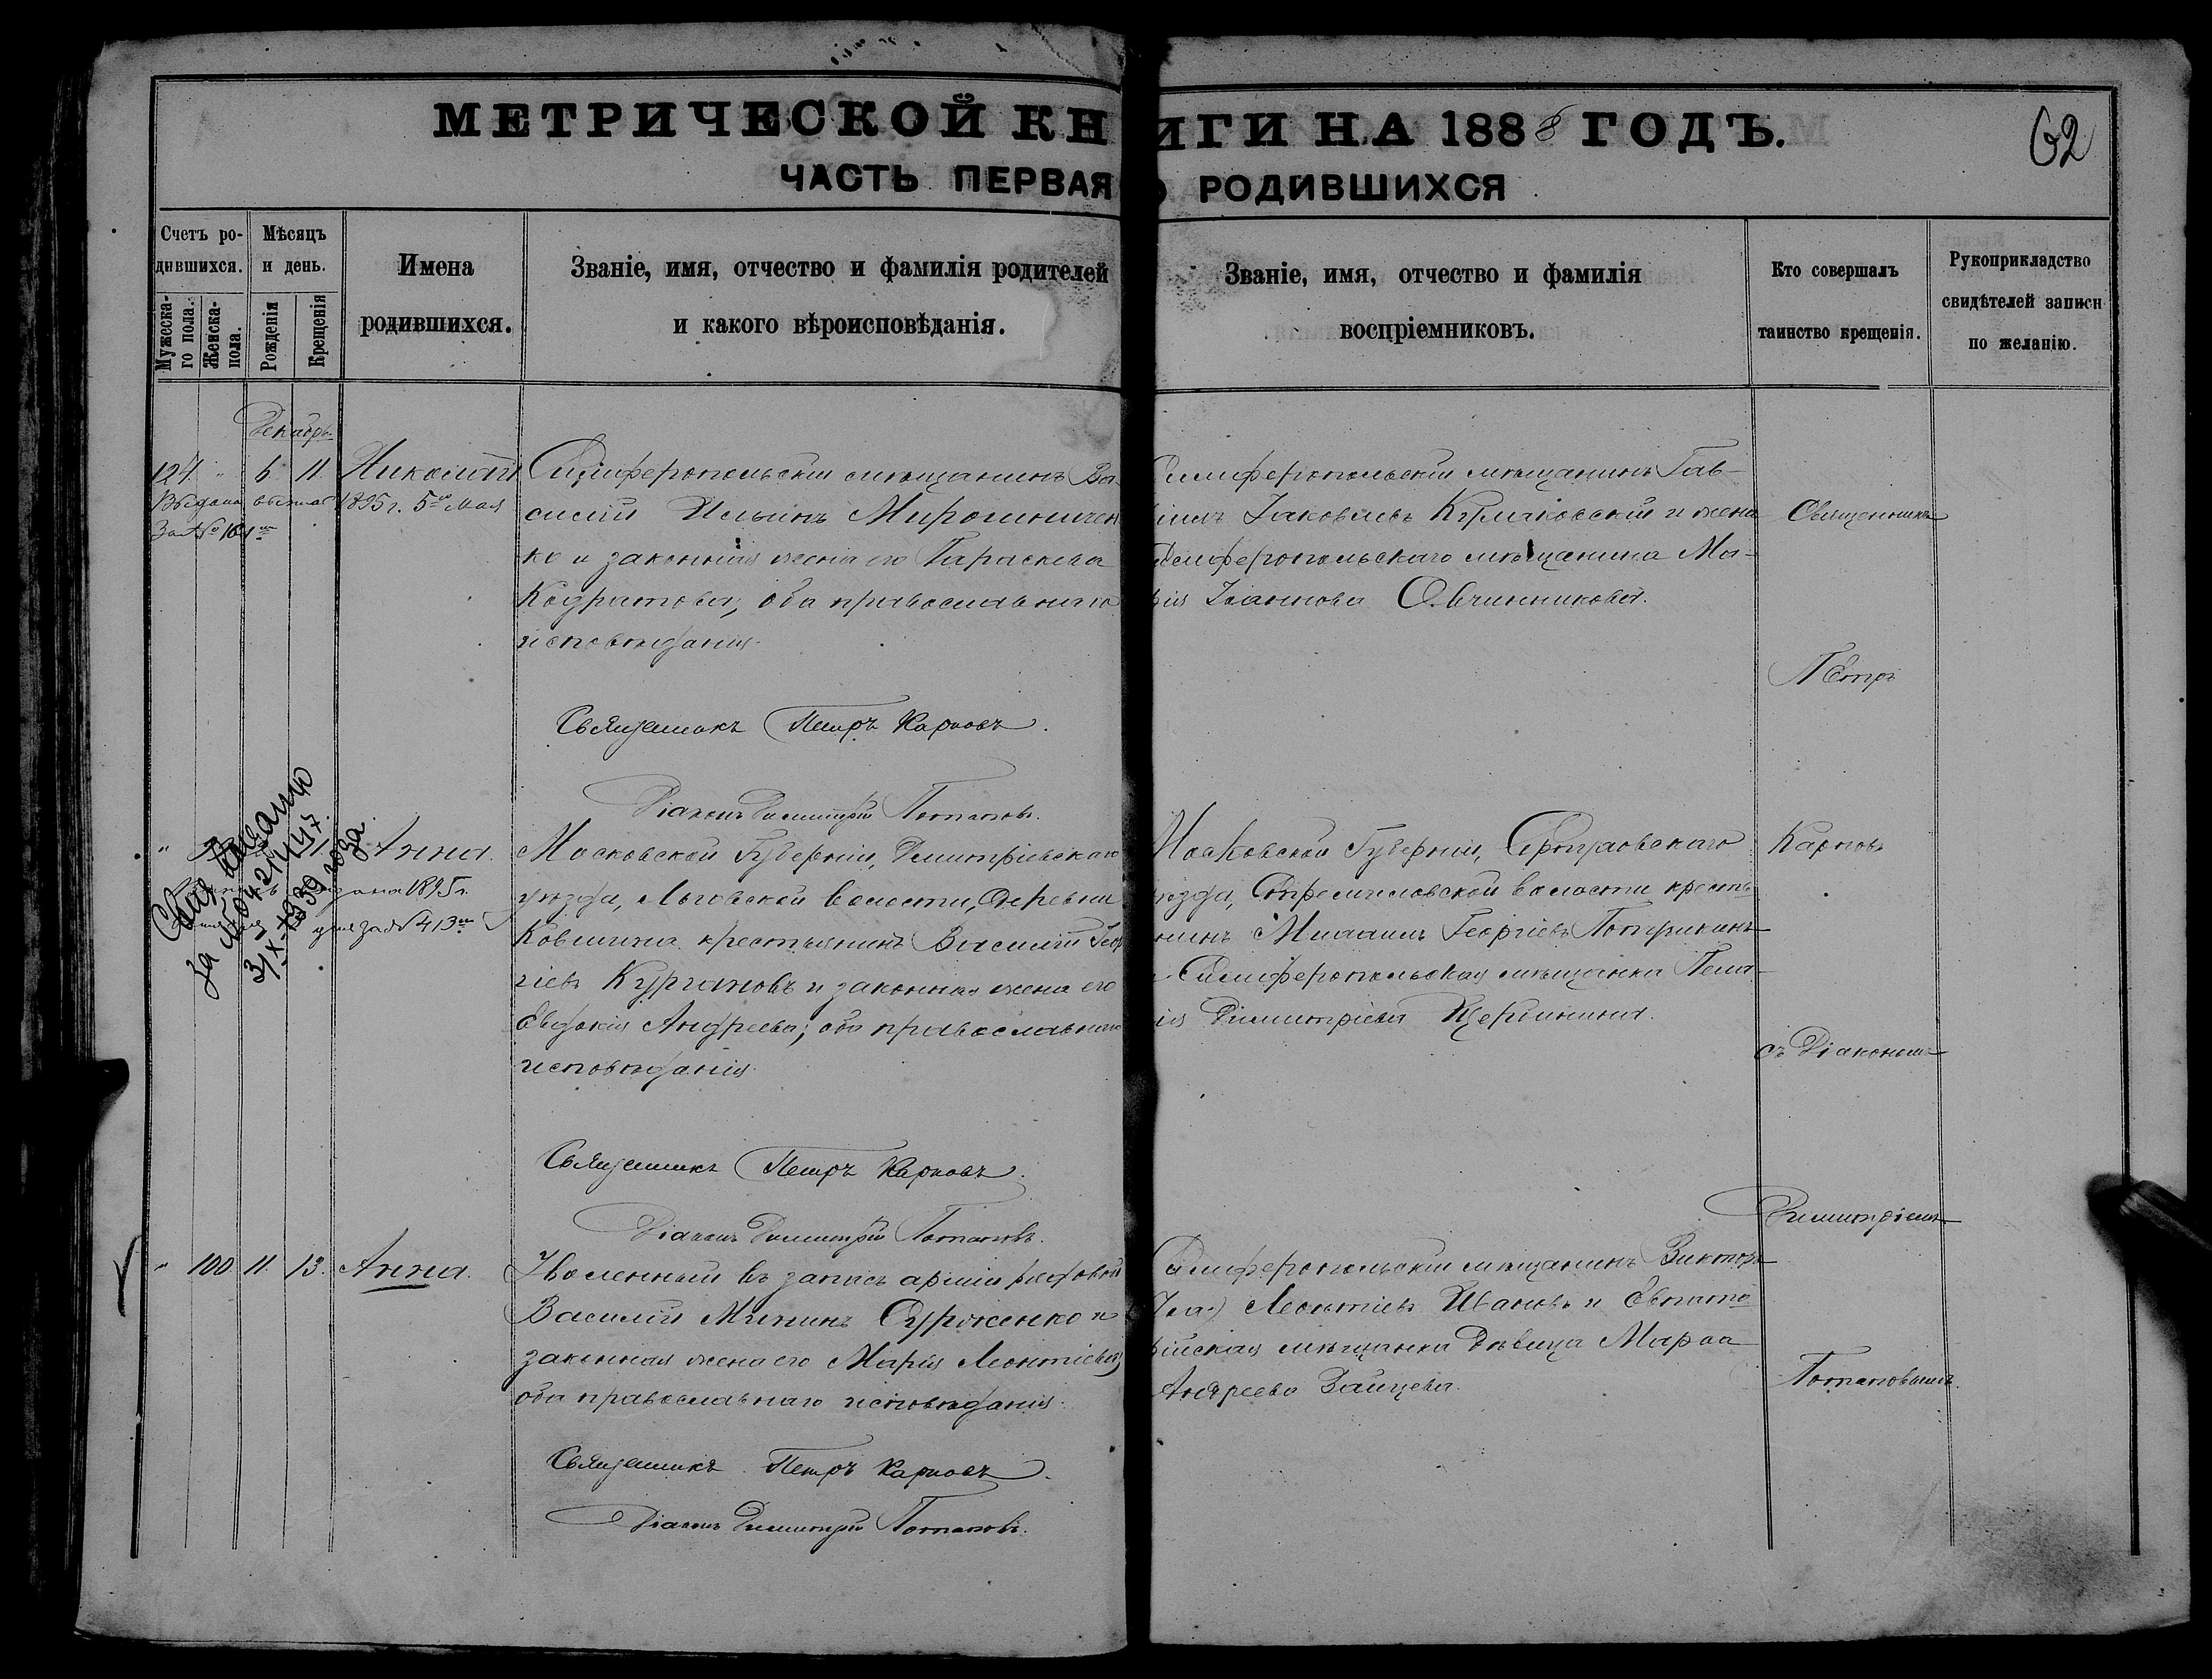 МЕТРИЧЕСКОЙ КНИГИ НА 1888 ГОДЪ.
62
ЧАСТЬ ПЕРВАЯ О РОДИВШИХСЯ
Счетъ родившихся.
Мужескаго пола.
Женска- пола.
Мѣсяцъ и день.
Рожденія
Крещенія
Имена
родившихся.
Званіе, имя, отчество и фамилія родителей
и какого вѣроисповѣданія.
Званіе, имя, отчество и фамилія
воспріемниковъ.
Кто совершалъ
таинство крещенія.
Рукоприкладство
свидѣтелей записи
по желанію.
Декабрь
124 " 6 11. Николай
Выдана 1895 г. 5го Мая
За №
Симферопольскій мѣщанинъ Ва-
силій Ильинъ Мирошничен
ко и законная жена его Параскева
Кодратова, оба православнаго
исповѣданія.
Священникъ Петръ Карповъ.
Діаконъ Димитрій Потаповъ.
Симферопольскій мѣщанинъ Гав-
Іаковлевъ и жена
Симферопольскаго мѣщанина Ма-
рія Іоаннова Овчинникова.
" Анна.
выдана 1895 г.
за № 413
Свид. выдано
за № 042/447
31-X-1939 года
Московской Губерніи, Димитріевскаго
уѣзда, Льговской волости, Деревни
крестьянинъ Василій Геор
гіевъ Кургановъ и законная жена его
Евдокія Андреева; оба православнаго
исповѣданія
Священникъ Петръ Карповъ.
Діаконъ Димитрій Потаповъ.
Московской Губерніи, Серпуховскаго
уѣзда, Стремиловской волости кресть-
нинъ Михаилъ Георгіевъ
Симферопольская мѣщанка Пела-
ія Димитріева Щербинина.
" 100 11. 13. Анна.
Уволенный въ запасъ арміи рядовой
Василій Сурженко и
законная жена его Марія Леонтіева,
оба православнаго исповѣданія.
Священникъ Петръ Карповъ.
Діаконъ Димитрій Потаповъ.
Симферопольскій мѣщанинъ Викторъ
Леонтіевъ Ивановъ и Евпато-
рійская мѣщанка дѣвица Марѳа
Андреева Зайцева.
Священникъ
Петръ
Карповъ
съ Діакономъ
Димитріемъ
Потаповымъ.